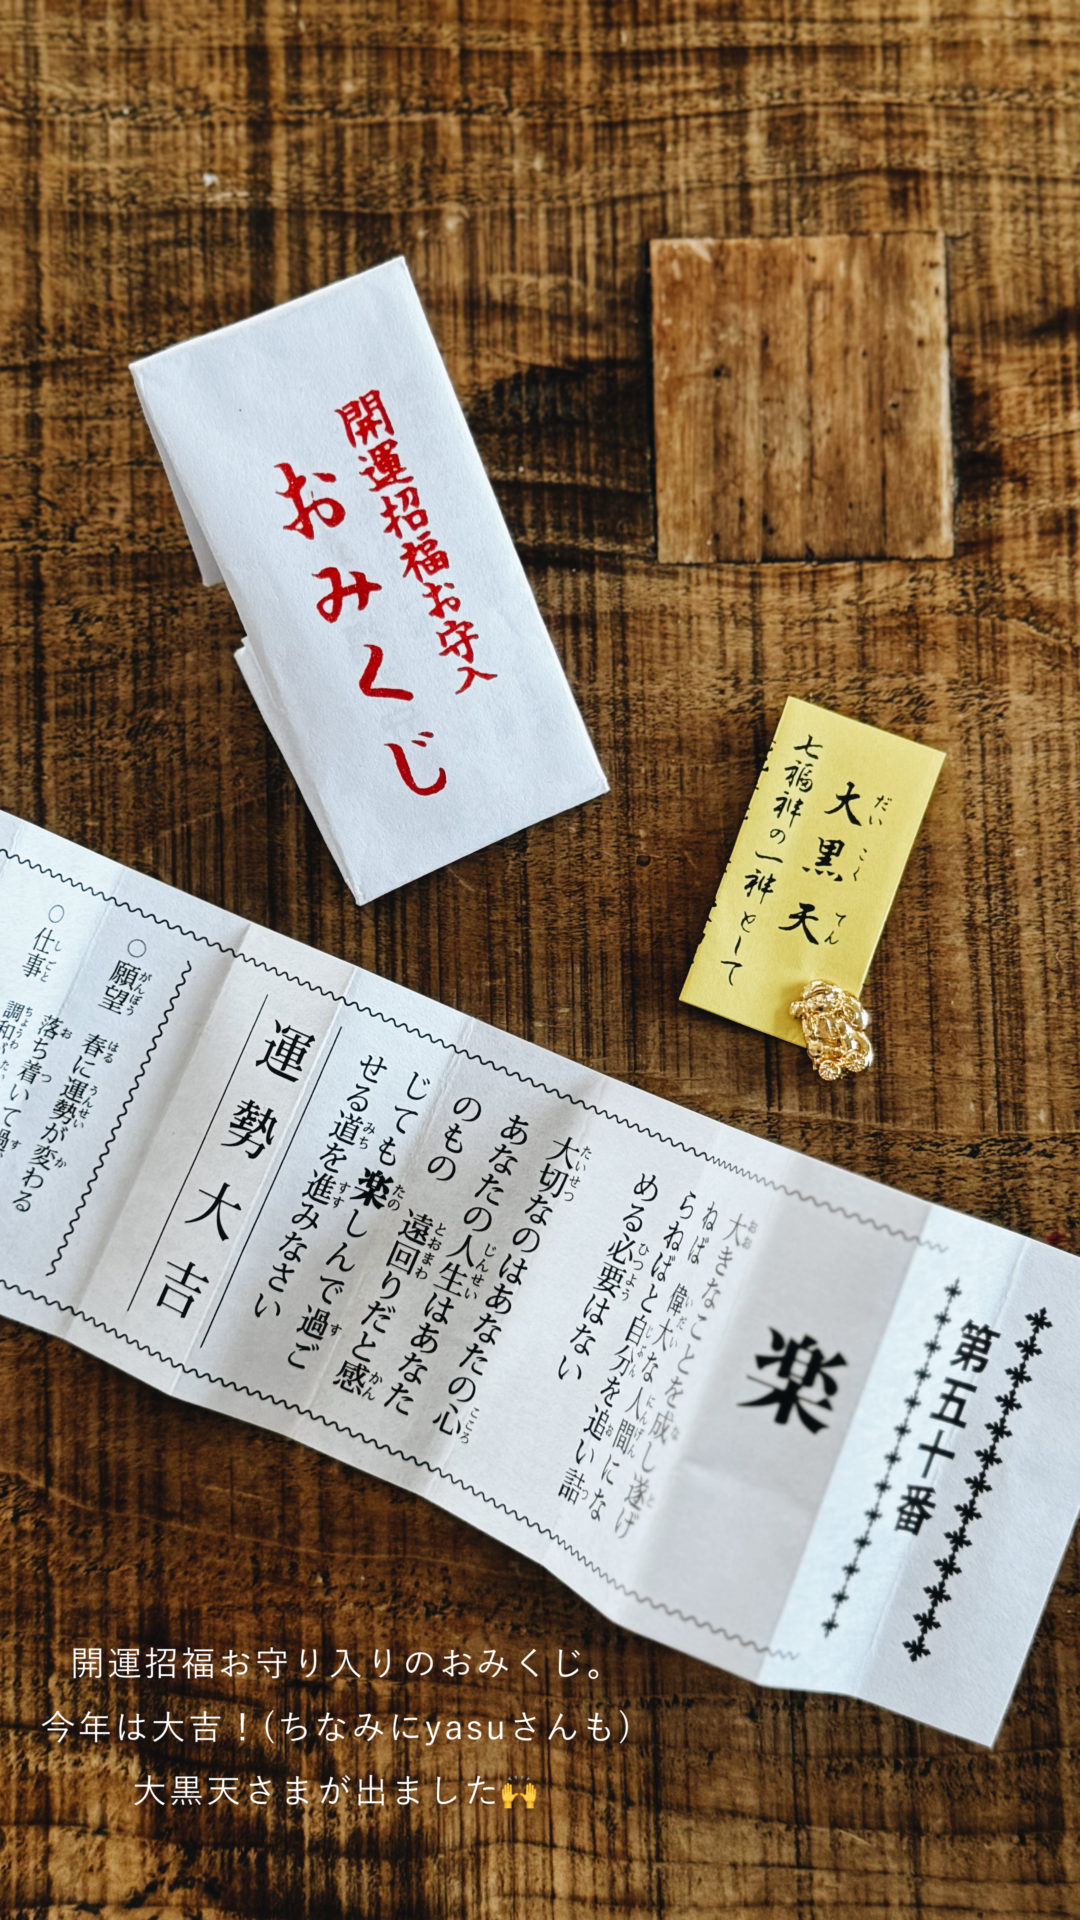 開運招福お守入
おみくじ
大黒天
だいこくてん
七福神の一神として
第五十番
楽
大きなことを成し遂げ
ねば 偉大な人間にな
らねばと自分を追い詰
める必要はない
大切なのはあなたの心
あなたの人生はあなた
のもの 遠回りだと感
じても楽しんで過ご
せる道を進みなさい
運勢大吉
○願望 春に運勢が変わる
○仕事 落ち着いて過
調和
開運招福お守り入りのおみくじ。
今年は大吉！(ちなみにyasuさんも)
大黒天さまが出ました🙌